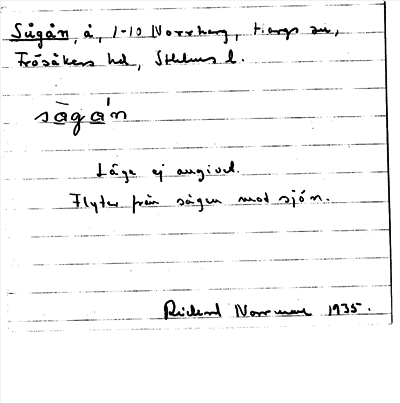 Sågån, å, 1-10 Norrharg, Hargs sn,
Frösåkers hd, Sthlms l.
sågán
Läge ej angivet.
Flyter från sågen mot sjön.
Rickard Norrman 1935.